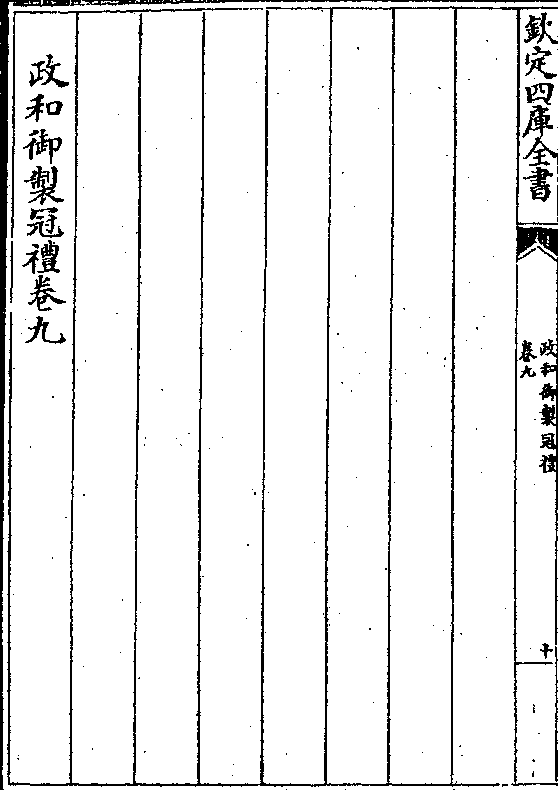 欽定四庫全書
政和御製冠禮
卷九
十
政和御製冠禮卷九